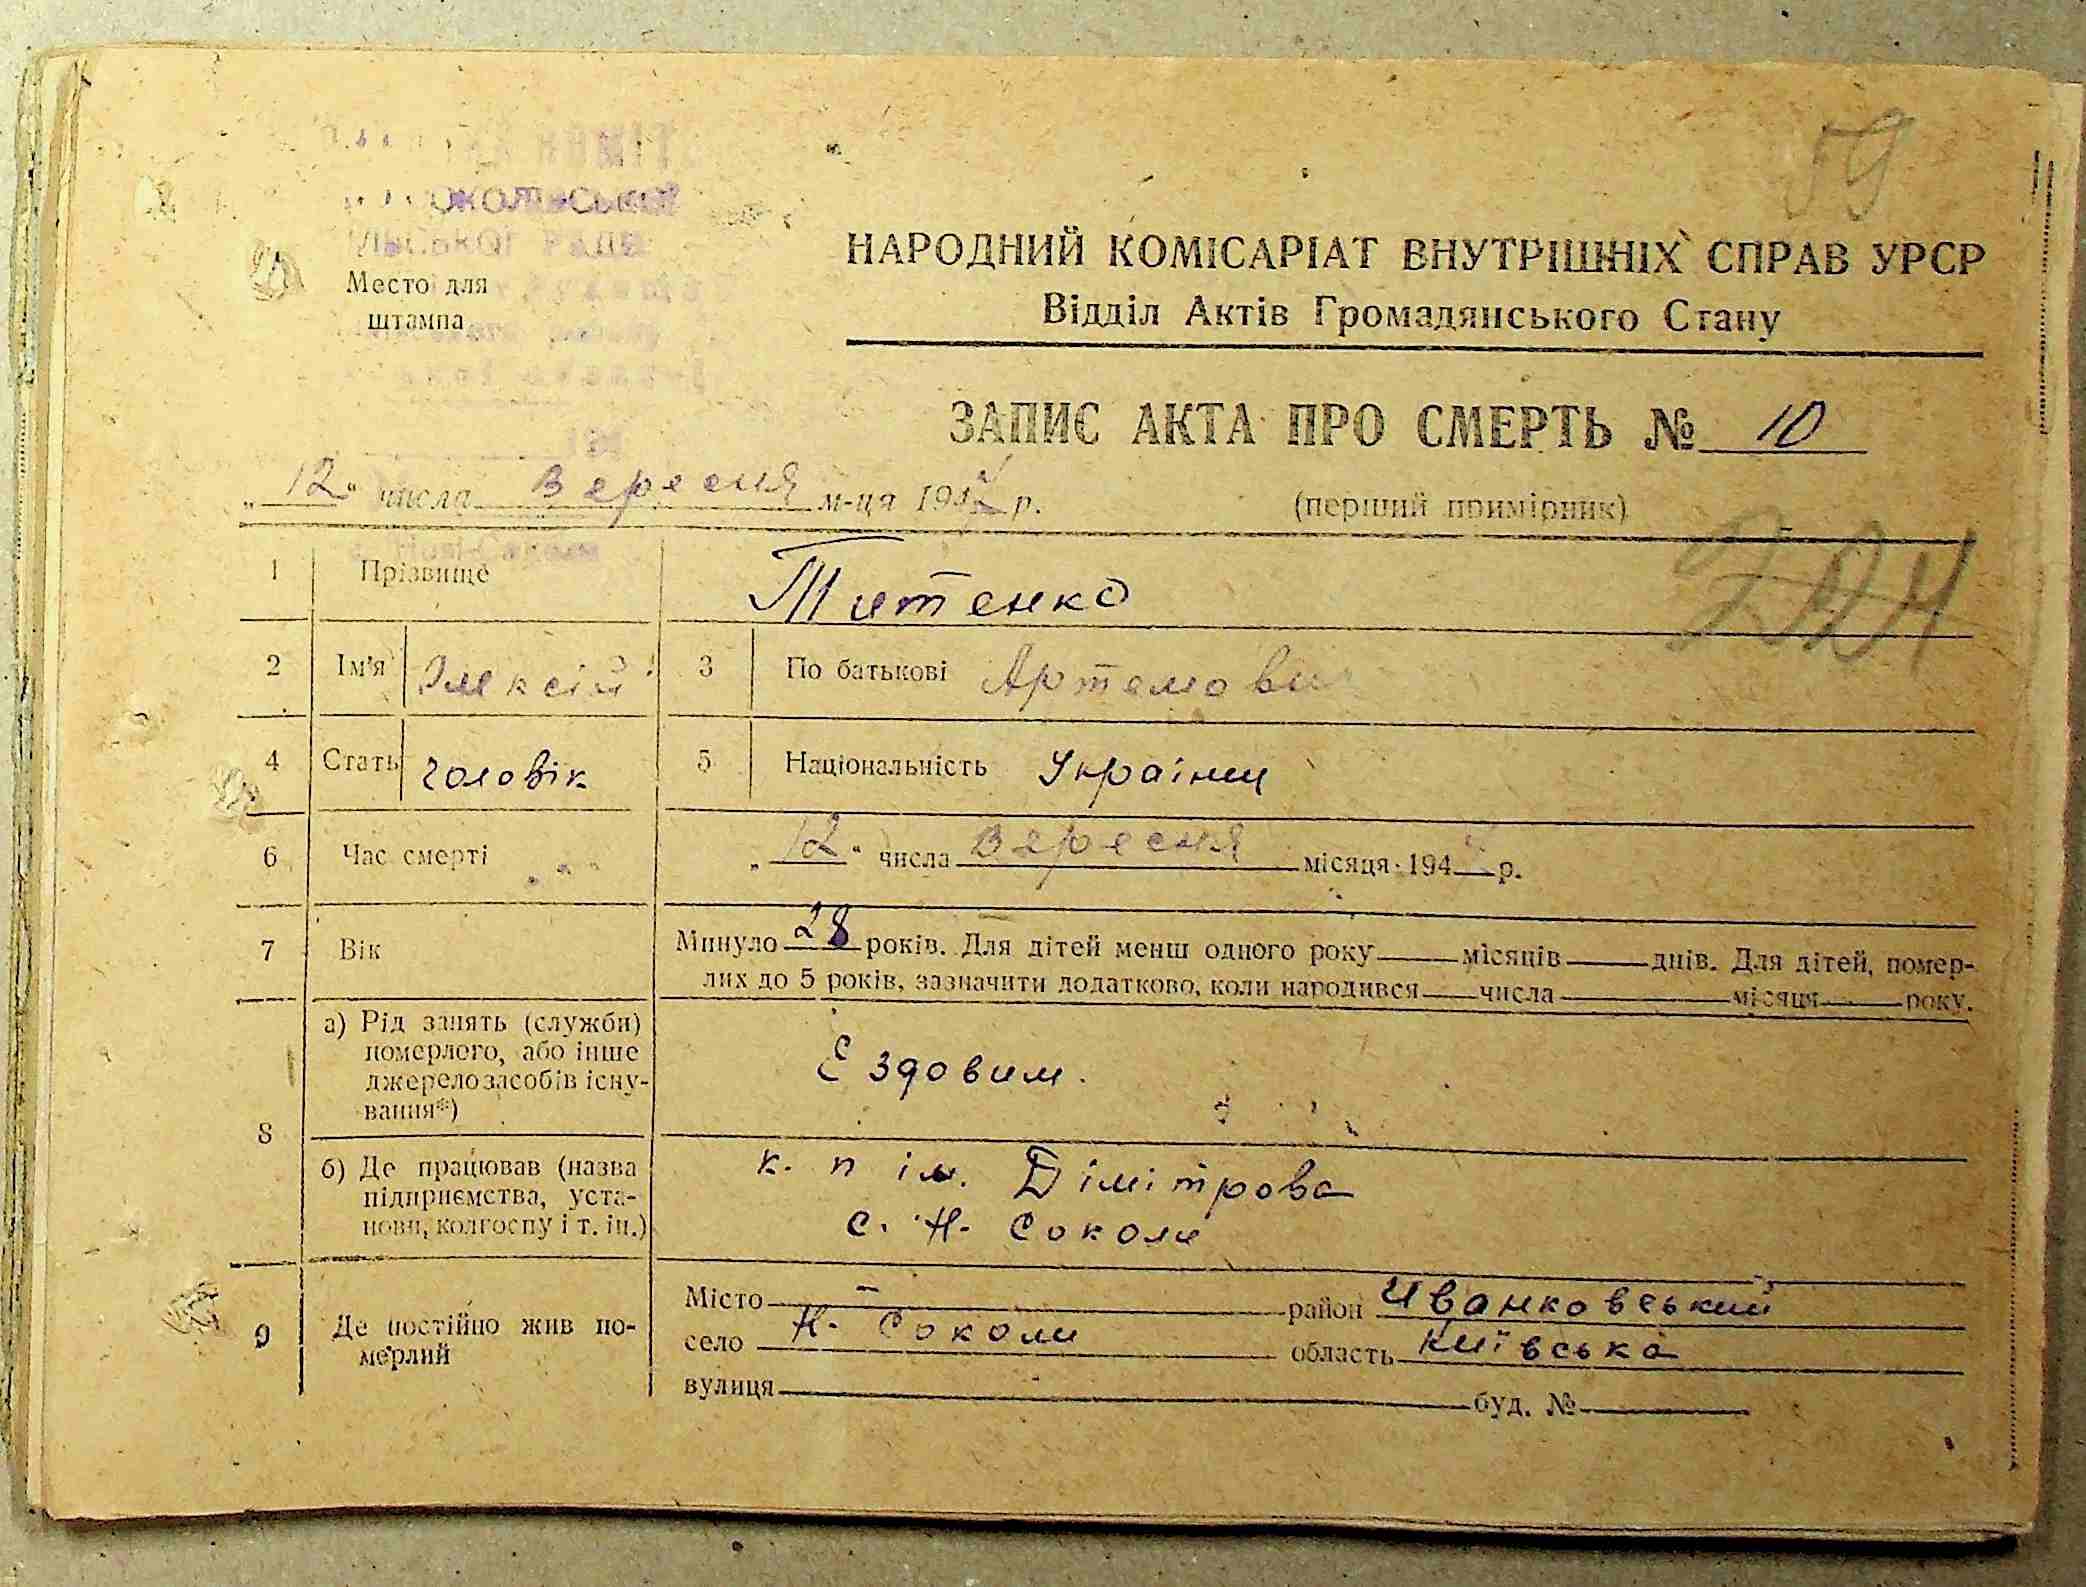 59
ОКОЛ СЬКОЇ
НАРОДНИЙ КОМІСАРІАТ ВНУТРІШНІХ СПРАВ УРСР
Відділ Актів Громадянського Стану
Место для
штампа
ЗАПИС АКТА ПРО СМЕРТЬ № 10
„12“ числа Вересня м-ця 194 р. (перший примірник)
1 Прізвище Титенко
2 Ім'я Олексій 3 По батькові Артемови
4 Стать чоловік 5 Національність Українц
6 Час смерті „12“ числа Вересня місяця 194 р.
7 Вік Минуло 28 років. Для дітей менш одного року місяців днів. Для дітей, помер-
лих до 5 років, зазначити додатково, коли народився числа місяця року.
8 а) Рід занять (служби)
померлого, або інше
джерело засобів існу-
вання*)
Ездовим.
б) Де працював (назва
підприємства, уста-
нови, колгоспу і т. ін.)
к. п ім. Дімітрова
с. Н. Соколи
9 Де постійно жив по-
мерлий
Місто — район Иванковський
село Н. Соколи область Київська
вулиця буд. №